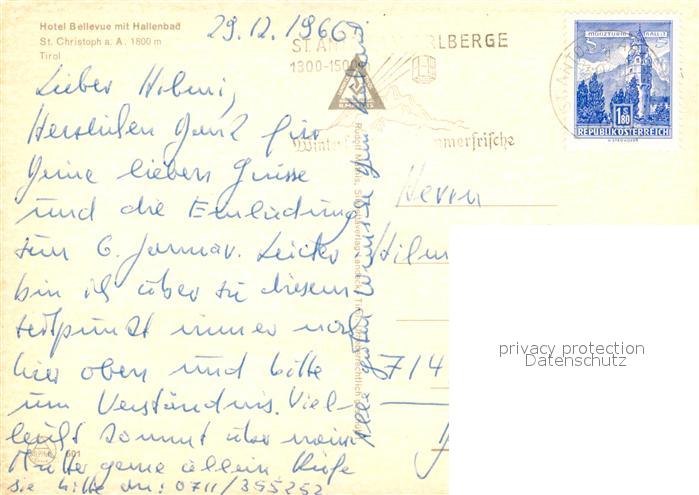 Hotel Bellevue mit Hallenbad
St. Christoph a. A. 1800 m
Tirol
29.12.1966
ST. AN
RLBERGE
1300-1500
Winter
mmerfrische
MÜNZTURM HALL i. T.
S 1.80
REPUBLIK ÖSTERREICH
ST. ANTON
Lieber Helmi,
Herzlichen Dank für
Deine lieben Grüsse
und die Einladung
zum 6. Januar. Leider
bin ich aber zu diesem
Zeitpunkt immer noch
hier oben und bitte
um Verständnis. Viel-
leicht kommt aber meine
Mutter gerne allein. Rufe
sie bitte an: 0711/395252
Alle guten Wünsche
Rudolf Mathis
Herrn
714
501
privacy protection
Datenschutz